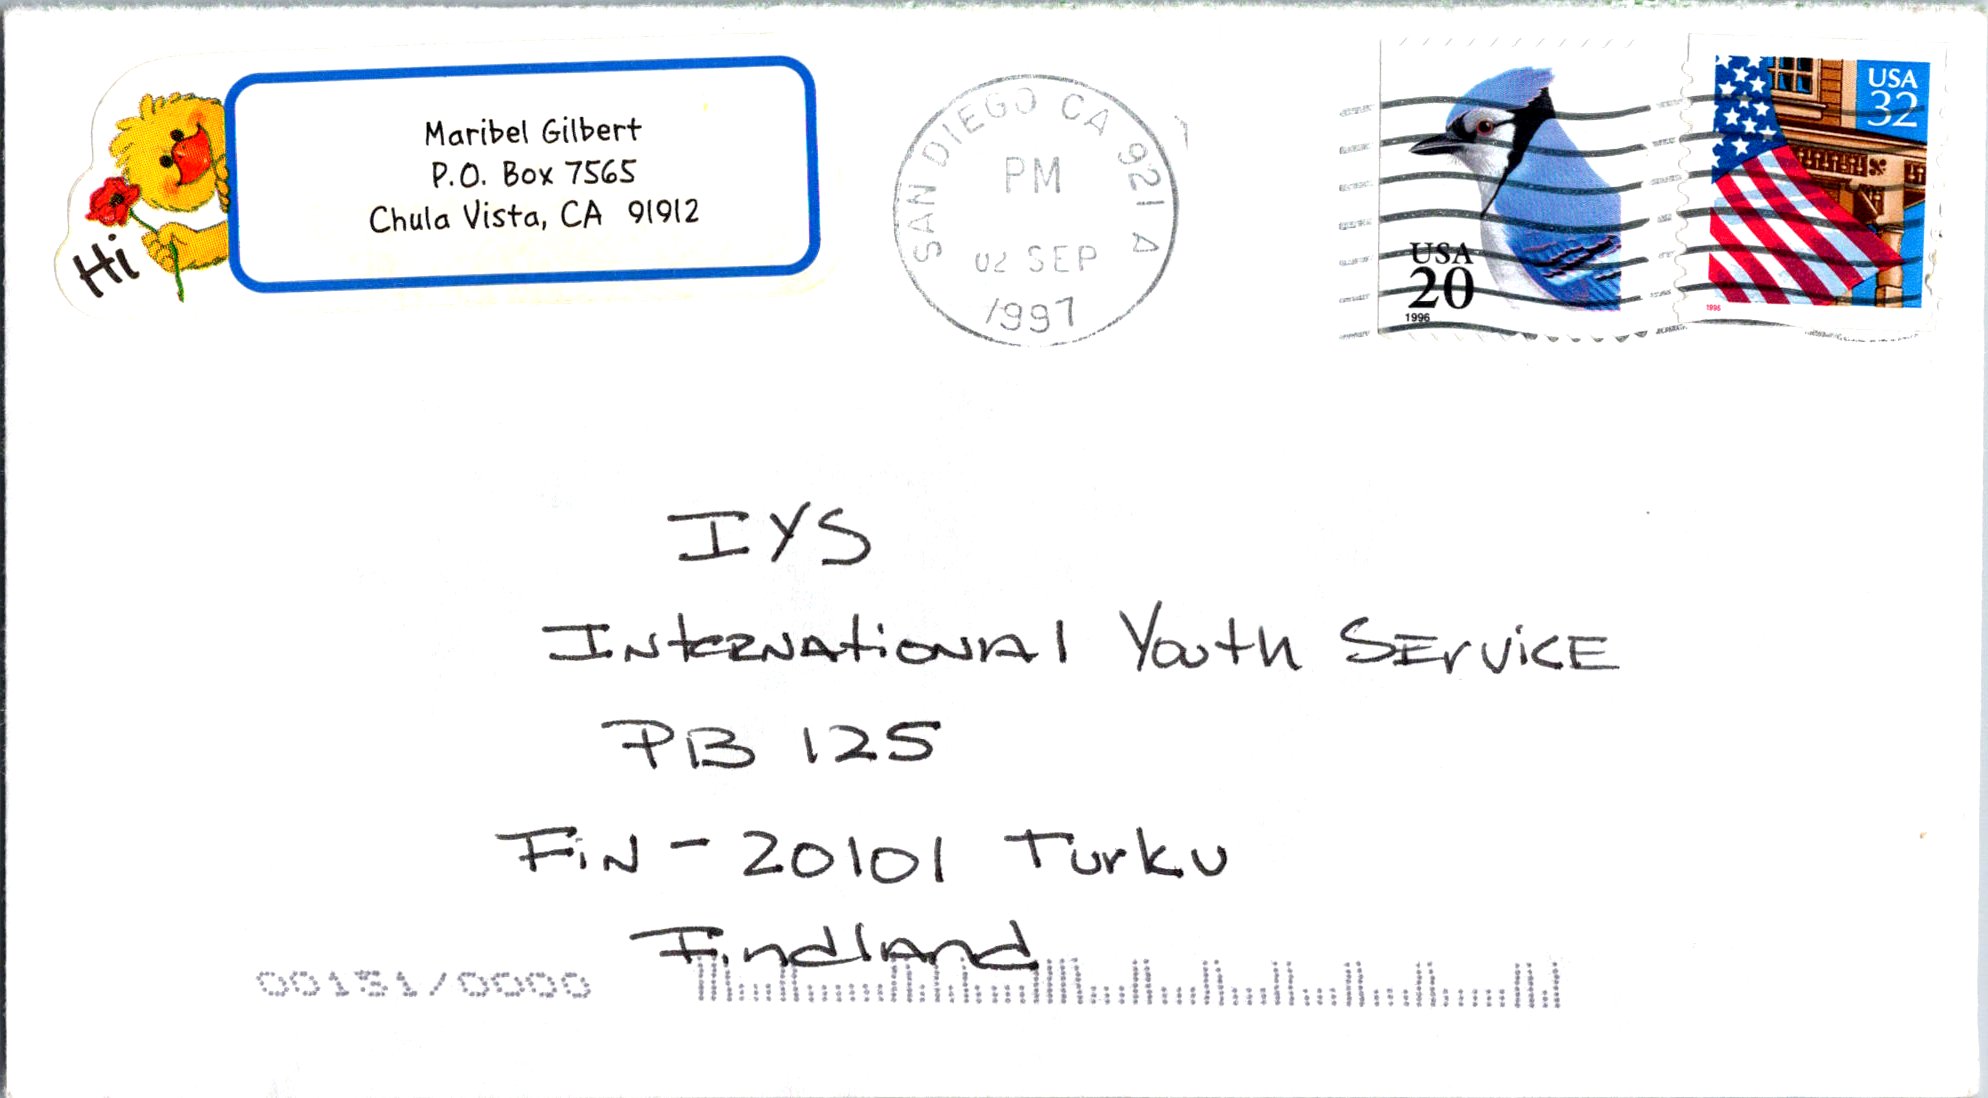 Hi
Maribel Gilbert
P.O. Box 7565
Chula Vista, CA 91912
SAN DIEGO CA 921 A
PM
02 SEP
1997
USA
20
1996
USA
32
1996
IYS
International Youth Service
PB 125
FiN - 20101 Turku
Findland
00131/0000